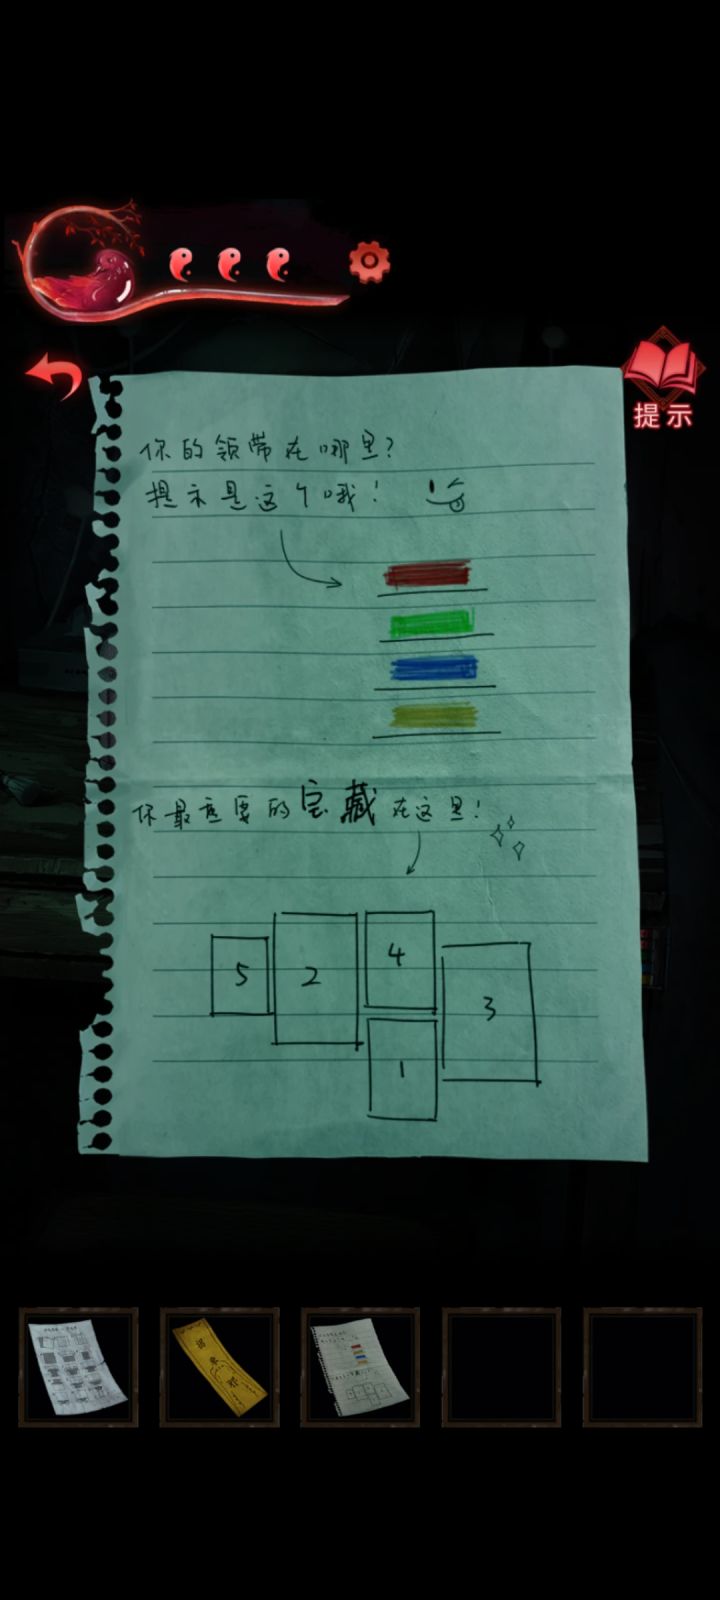 提示
你的领带在哪里?
提示是这个哦!
你最重要的宝藏在这里!
5 2 4 3
1